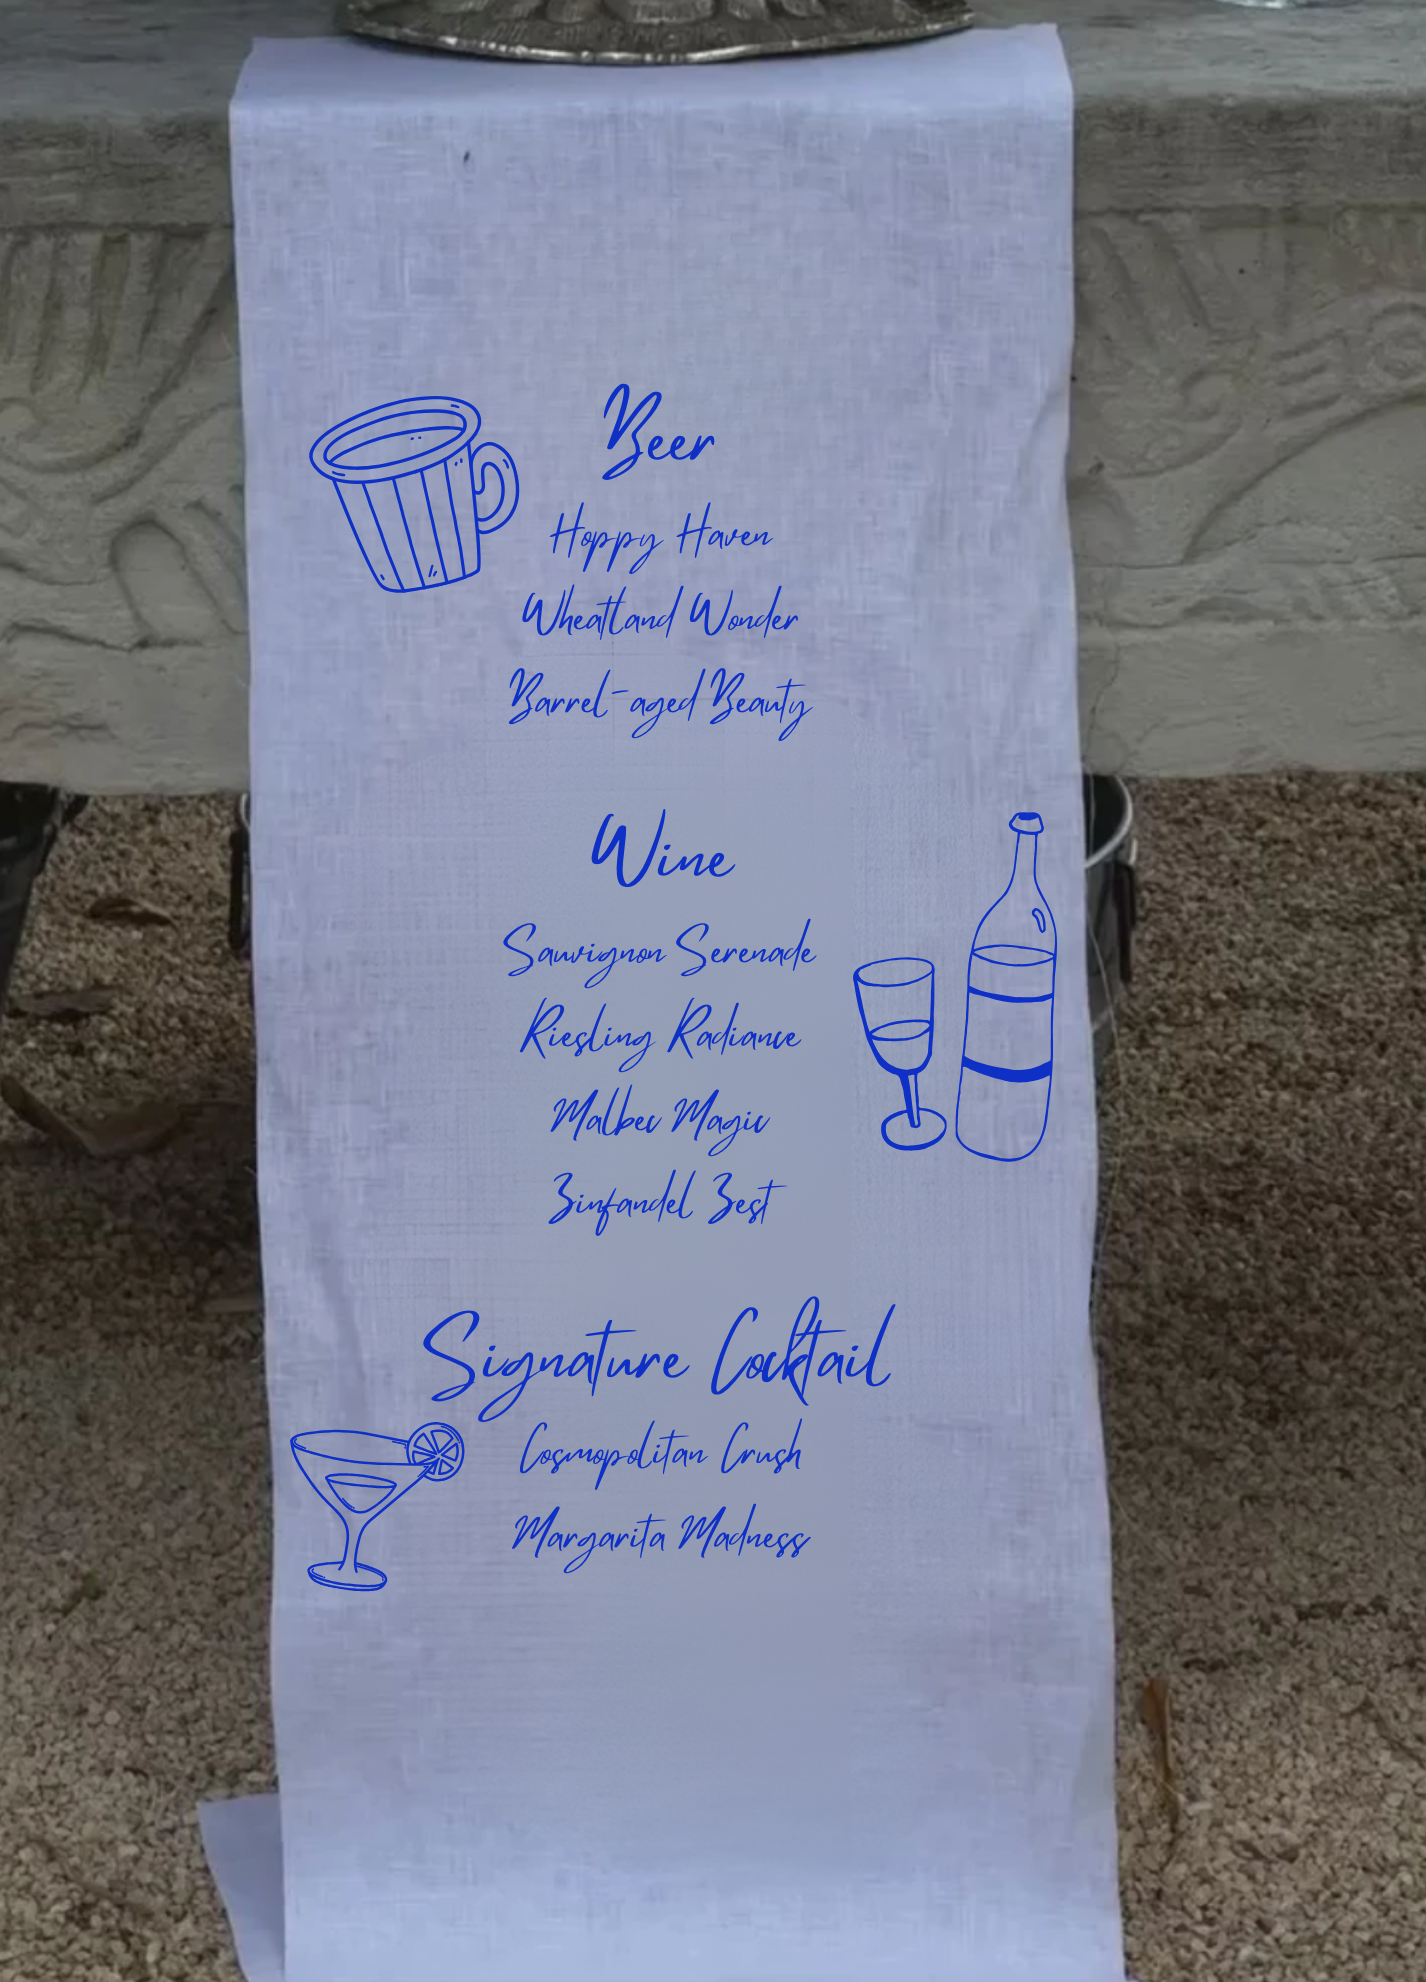 Beer
Hoppy Haven
Wheatland Wonder
Barrel-aged Beauty
Wine
Sauvignon Serenade
Riesling Radiance
Malbec Magic
Zinfandel Zest
Signature Cocktail
Cosmopolitan Crush
Margarita Madness